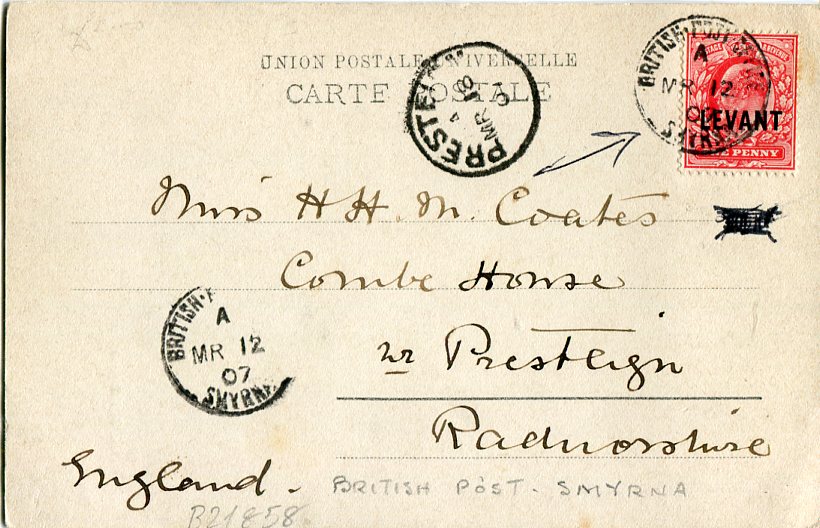 UNION POSTALE UNIVERSELLE
CARTE POSTALE
PRESTE
4
MR 18
07
BRITISH·POST
A
MR 12
07
SMYRNA
POSTAGE REVENUE
LEVANT
ONE PENNY
Miss H H. M. Coates
Combe House
nr Presteign
Radnorshire
England.
BRITISH·P
A
MR 12
07
SMYRNA
BRITISH POST - SMYRNA
B21858